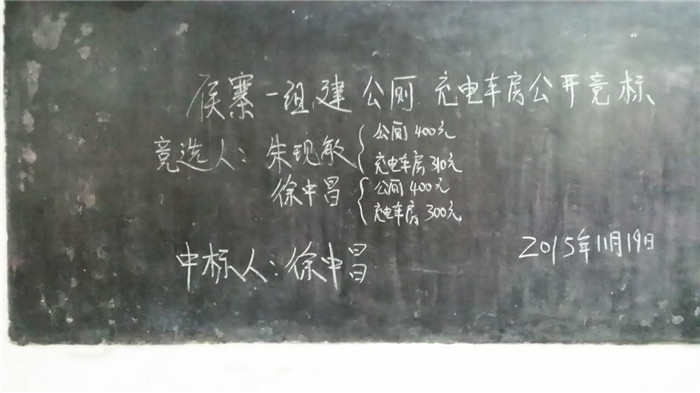 侯寨一组建公厕、充电车房公开竞标
竞选人：朱现敏 公厕400元
充电车房310元
徐中昌 公厕400元
充电车房300元
中标人：徐中昌
2015年11月19日